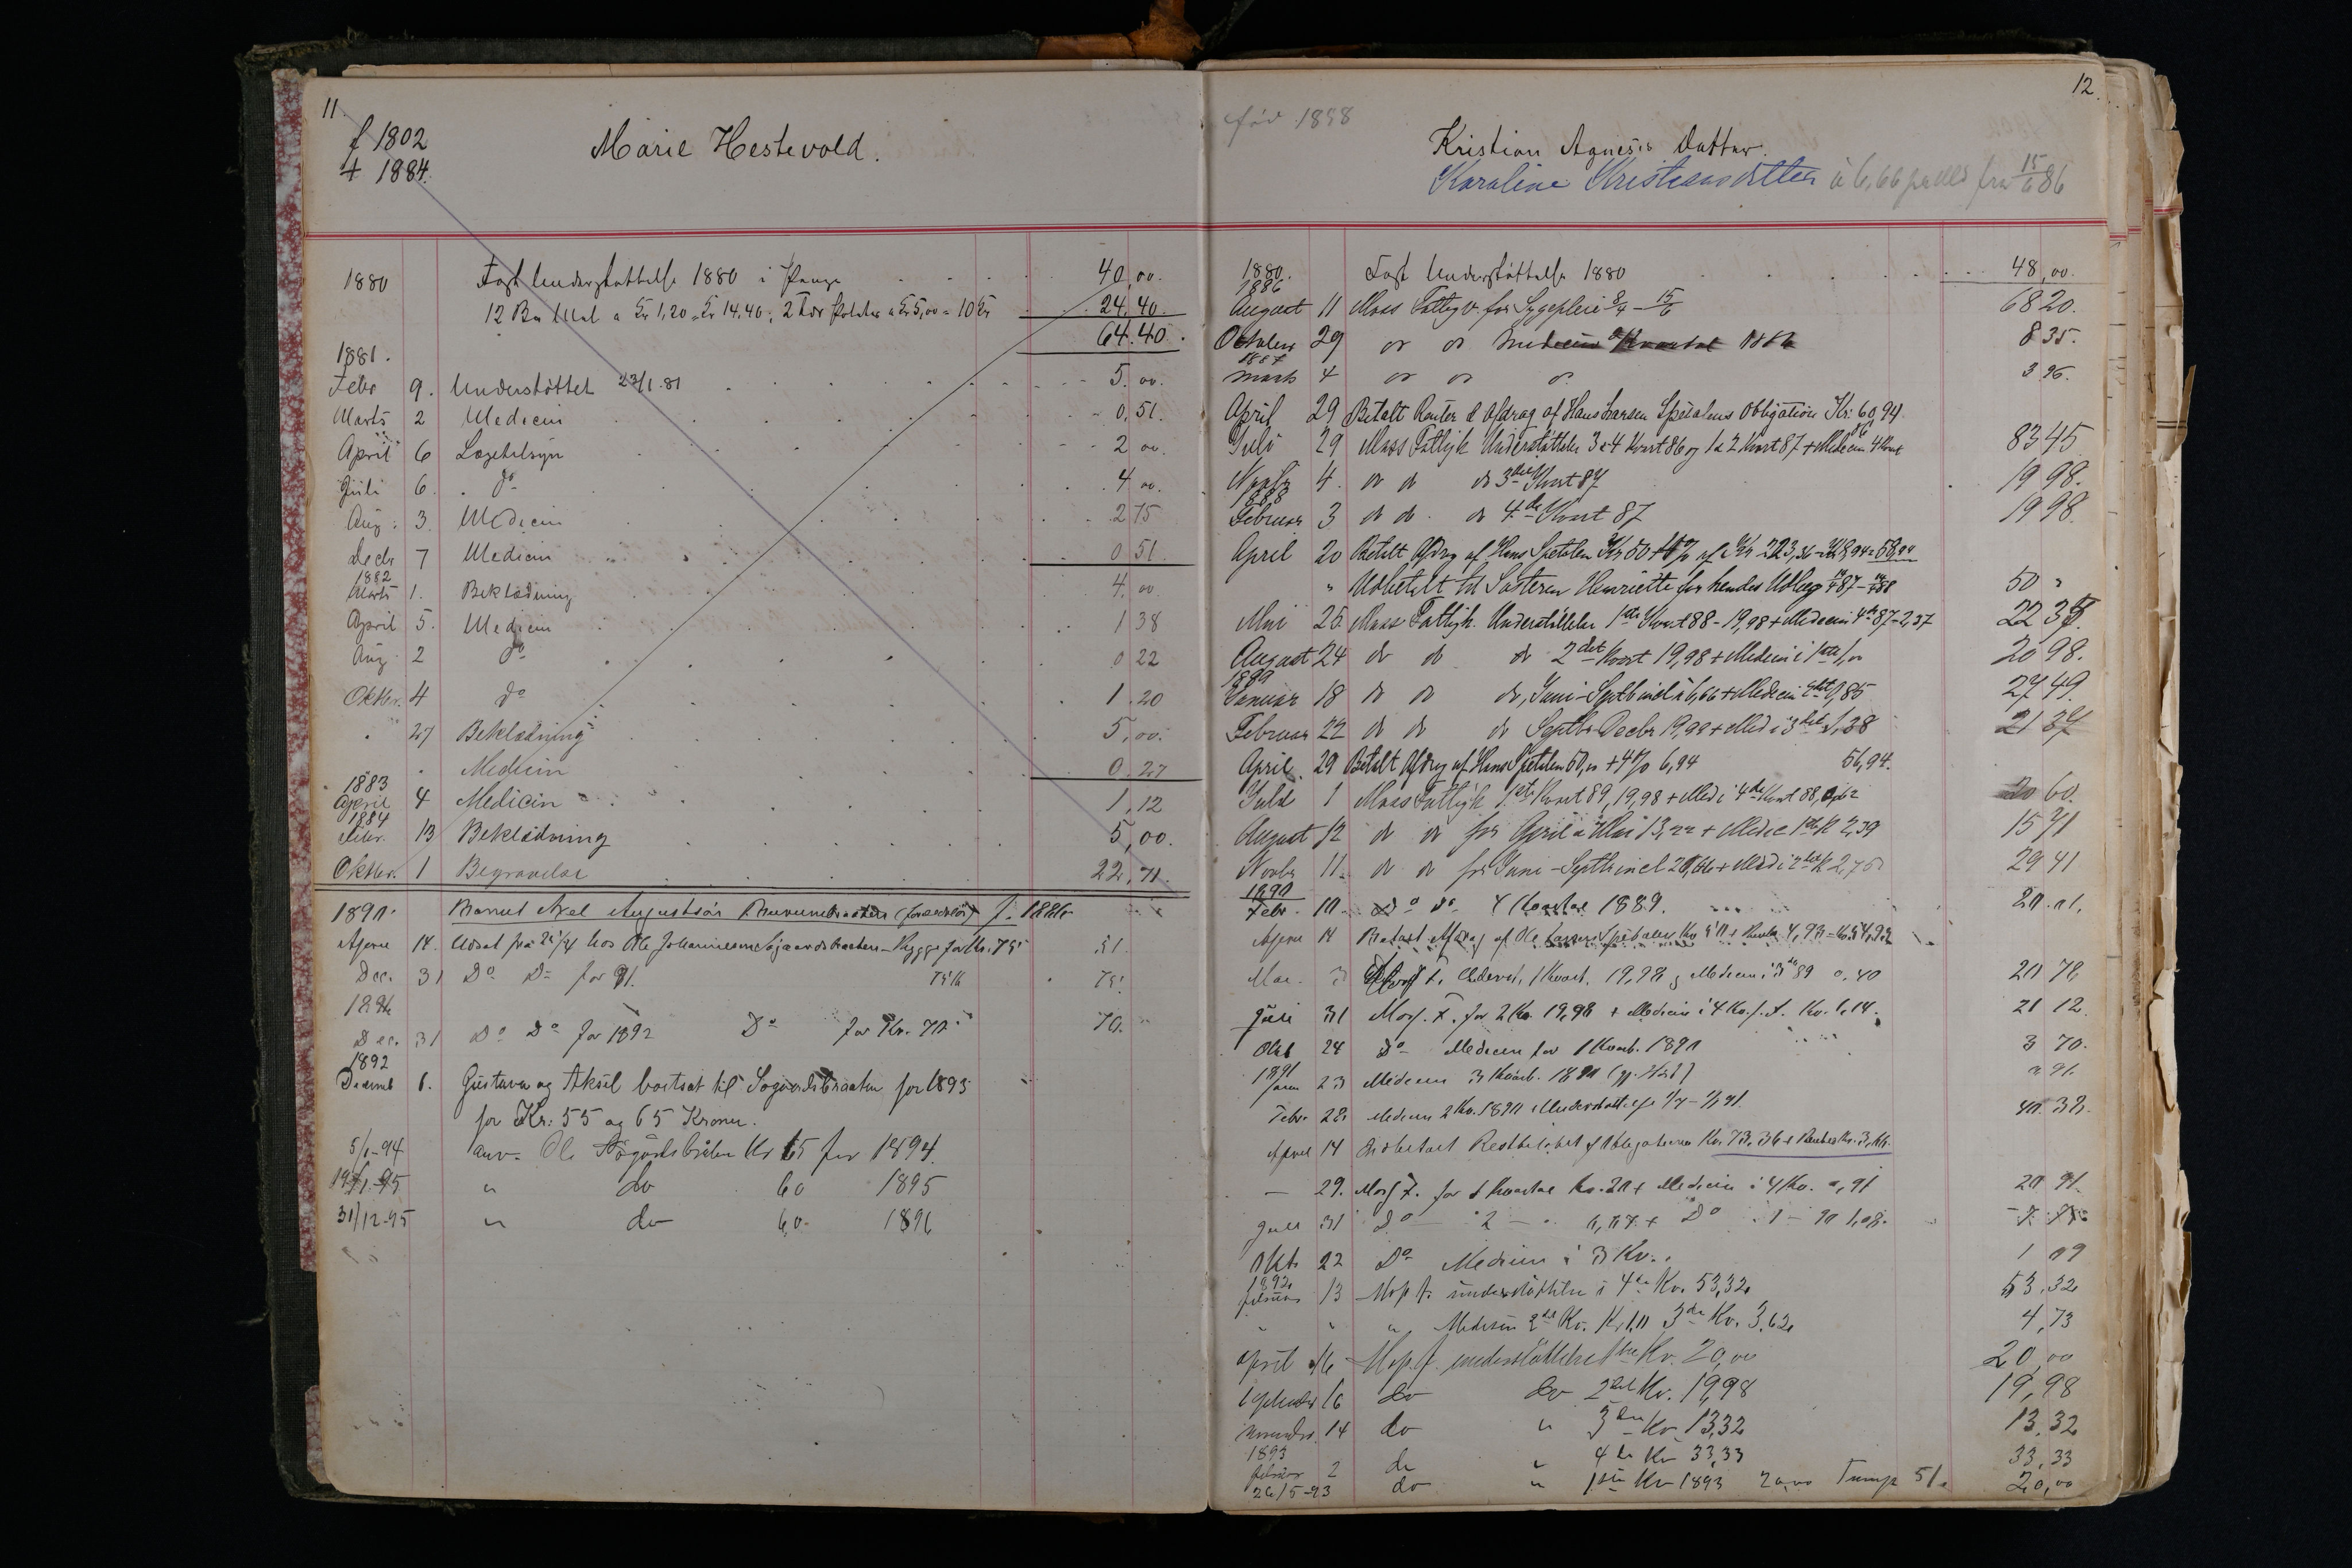 11.
f 1802
† 1884.
Marie Hestevold.
1880 Fast Understøttelse 1880 i Penge 40,00.
12 Bu Mel a Kr 1,20 = Kr 14.40, 2 Tdr Poteter a Kr 5,00 = 10 Kr 24.40.
64.40.
1881.
Febr 9. Understöttet 23/1-81 5.00.
Marts 2 Medicin 0,51.
April 6 Lægetilsyn 2 00.
Juli 6. do 4 00.
Aug. 3 Medicin 2 75
Decbr 7 Medicin 0 51.
1882
Marts 1. Beklædning 4.00
April 5. Medicin 1 38
Aug. 2 do 0 22
Oktbr. 4 do 1.20
" 27 Beklædning 5,00.
" Medicin 0.27
1883
April 4 Medicin 1,12
1884
Febr. 13 Beklædning 5,00.
Oktbr. 1 Begravelse 22,71.
1890. Axel Augustsön f. 1886
14. Udsat fra hos Ole Johannesen for Kr. 75 51.
Dec. 31 Do Do for 91. 75
Dec. 31 Do Do for 1892 Do for Kr. 70. 70.
1892
Decemb 6. Gustava og Aksel bortsat til Sogaardsbraaten for 1893
for Kr: 55 og 65 Kroner.
5/1-94 anv. Ole Kr 65 for 1894.
19/1-95 " do 60 1895
31/12-95 " do 60. 1896
12.
fød 1848
Kristian Agnesis Datter.
Karoline Kristiansdatter à 6,66 pr Md fra 15/6 86
1880. Fast Understøttelse 1880 48,00.
1886
August 11 Moss Fattigv. for Sygepleie 8/4 - 15/6 68 20.
October 29 do do Medicin Kvartal 1886 8 35.
1887
Marts 4 do do do 3 96.
April 29 Betalt Renter & Afdrag af Hans Larsen Spitalens Obligation Kr: 60,94
Juli 29 Moss Fattigk Understøttelse 3 & 4 Kvart 86 og 1 & 2 Kvart 87 + Medicin 4 Kvart 86 83 45
Novbr 4. do do do 3die Kvart 87 19 98.
1888
Februar 3 do do do 4de Kvart 87 19 98.
April 20 Betalt Afdrag af Hans Spetalen Kr 50 + 4% af Kr 223,36 = Kr 8,94 = 58,94
" Udbetalt til Søsteren Henriette for hendes Udlæg 50 "
Mai 25. Moss Fattigk. Understøttelse 1ste Kvart 88 - 19,98 + Medicin 4de 87 - 2,37 22 35.
August 24 do do do 2det Kvart 19,98 + Medicin i 1ste 1,00 20 98.
1889
Januar 18 do do do, Juni-Septb incl à 6,66 + Medicin 0,85 27 49.
Februar 22 do do do Septbr-Decbr 19,98 + Med i 3die 1,38 21 37
April 29 Betalt Afdrag af Hans Spetalen 50,00 + 4% 6,94 56,94.
Juli 1 Moss Fattigk 1ste Kvart 89, 19,98 + Med i 4de Kvart 88, 0,62 20 60.
August 12 do do for April & Mai 13,32 + Medic 1ste K 2,39 15 71
Novbr 11. do do for Juni-Septb incl 26,66 + Med i 2det K 2,75 29 41
1890
Febr. 10 Do do 4 Kvartal 1889. 20.01.
14 Betalt Afdrag af Ole Larsen Spetalen Kr 50 + Rente 4,93 = Kr 54,93
Mai 3 Moss F. Underst. 1 Kvart. 19,98 og Medicin i 3de 89 0.40 20 78
Juli 31 Moss F. for 2 Kv. 19,98 + Medicin i 4 Kv. f. A. Kr. 1,14. 21 12.
Okt 24 Do Medicin for 1 Kvart. 1890 3 70.
1891
Jan 23 Medicin 3 Kvart. 1890 0 91.
Febr. 28. Medicin 2 Kv. 1890 Understøttelse 40.38.
April 14 Indbetalt Restbeløbet af Obligationen Kr. 73,36 + Renter Kr. 3,66.
— 29. Moss F. for 1 Kvartal Kr. 20 + Medicin i 4 Kv. 0,91 20 91.
Juli 31 Do — 2 — + Do 1 — 90 1,08.
Okt. 22 Do Medicin i 3 Kv. 1 09
1892
Februar 13 Moss f. understöttelse i 4de Kv. 53,32 53.32
" " " Medisin 2det Kv. Kr 1,11 3die Kv. 3,62 4,73
April Moss f. understöttelse 1ste Kv. 20,00 20,00
September 16 do do 2det Kv. 19,98 19,98
November 14 do " 3die Kv. 13,32 13,32
1893
Februar 2 do " 4de Kv 33,33 33,33
26/5-93 do " 1ste Kv 1893 20,00 51. 20,00